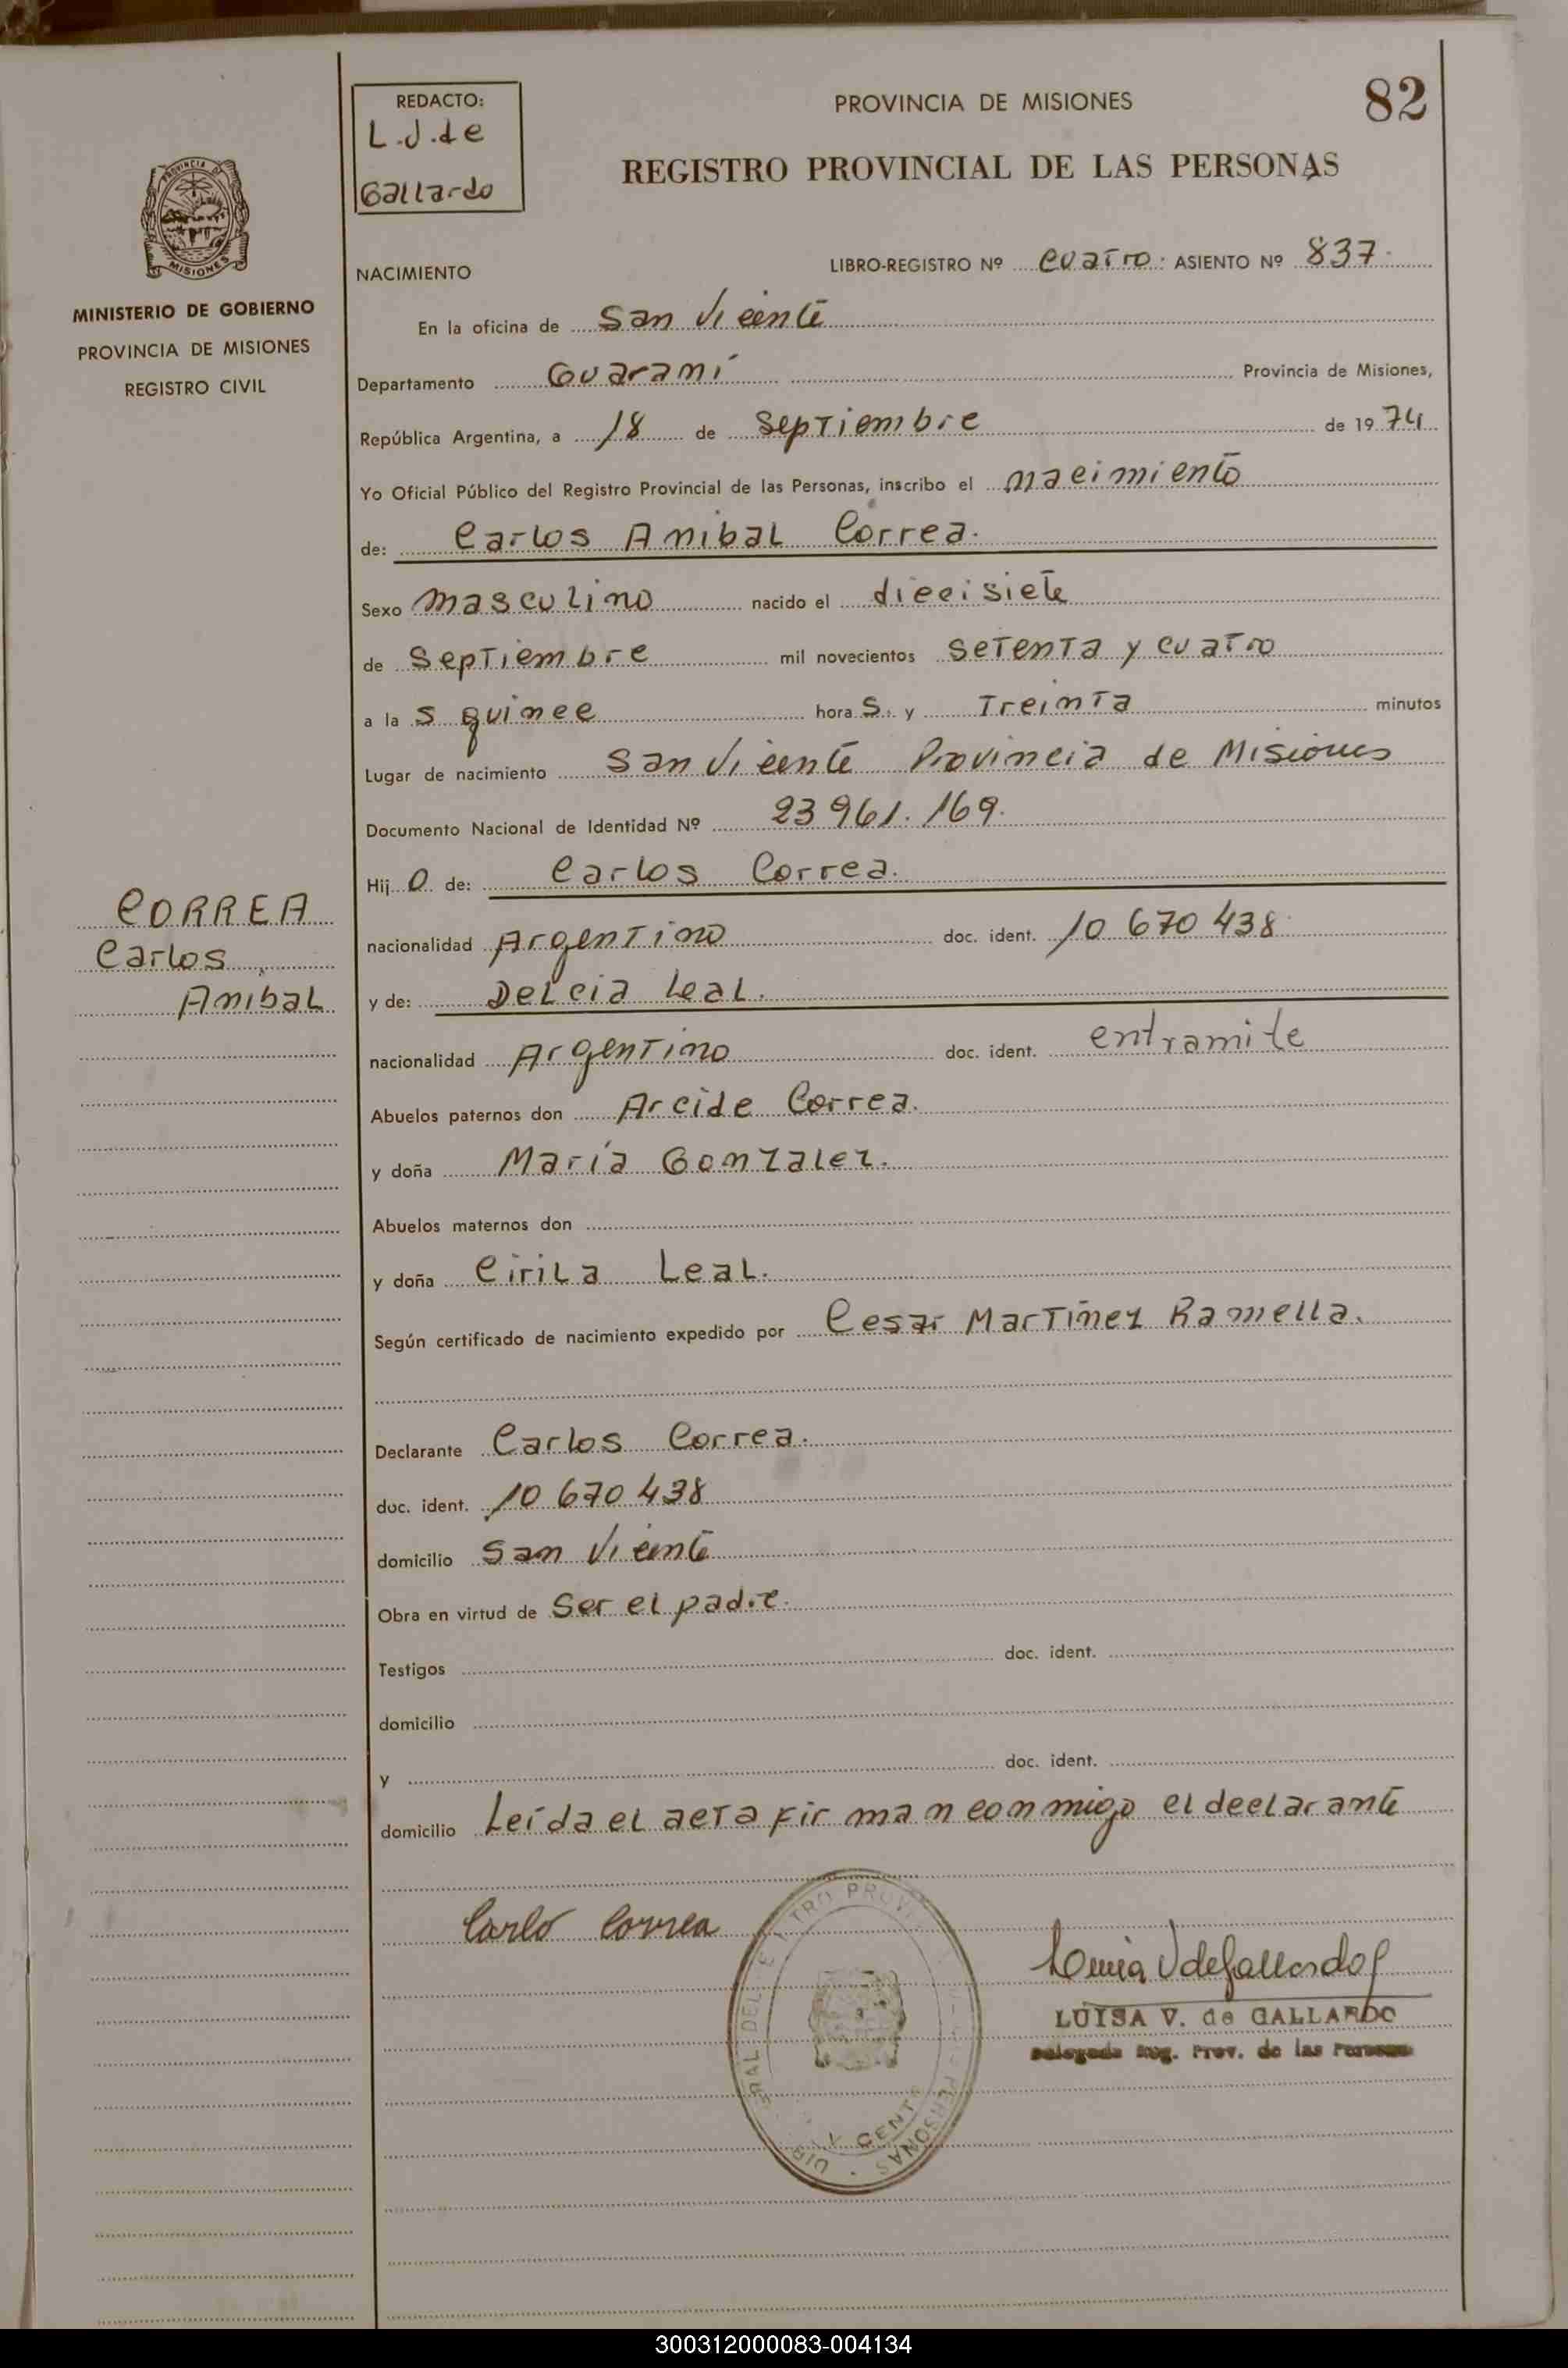 82
REDACTO:
L.J.de
Gallardo
PROVINCIA DE MISIONES
REGISTRO PROVINCIAL DE LAS PERSONAS
PROVINCIA DE
MISIONES
MINISTERIO DE GOBIERNO
PROVINCIA DE MISIONES
REGISTRO CIVIL
NACIMIENTO
LIBRO-REGISTRO Nº cuatro: ASIENTO Nº 837.
En la oficina de San Vicente
Departamento Guaraní Provincia de Misiones,
República Argentina, a 18 de Septiembre de 1974
Yo Oficial Público del Registro Provincial de las Personas, inscribo el nacimiento
de: Carlos Anibal Correa.
Sexo masculino nacido el diecisiete
de Septiembre mil novecientos setenta y cuatro
a las quince horas. y Treinta minutos
Lugar de nacimiento San Vicente Provincia de Misiones
Documento Nacional de Identidad Nº 23961.169.
Hijo de: Carlos Correa.
nacionalidad Argentino doc. ident. 10 670 438
y de: Delcia Leal.
nacionalidad Argentino doc. ident. entramite
Abuelos paternos don Arcide Correa.
y doña María Gonzalez.
Abuelos maternos don
y doña Cirila Leal.
Según certificado de nacimiento expedido por Cesar Martinez Ramella.
Declarante Carlos Correa.
doc. ident. 10 670 438
domicilio San Vicente
Obra en virtud de Ser el padre.
Testigos doc. ident.
domicilio
y doc. ident.
domicilio Leída el acta firman conmigo el declarante
CORREA
Carlos
Anibal
Carlo Correa
LUISA V. de GALLARDO
Delegada Reg. Prov. de las Personas
300312000083-004134